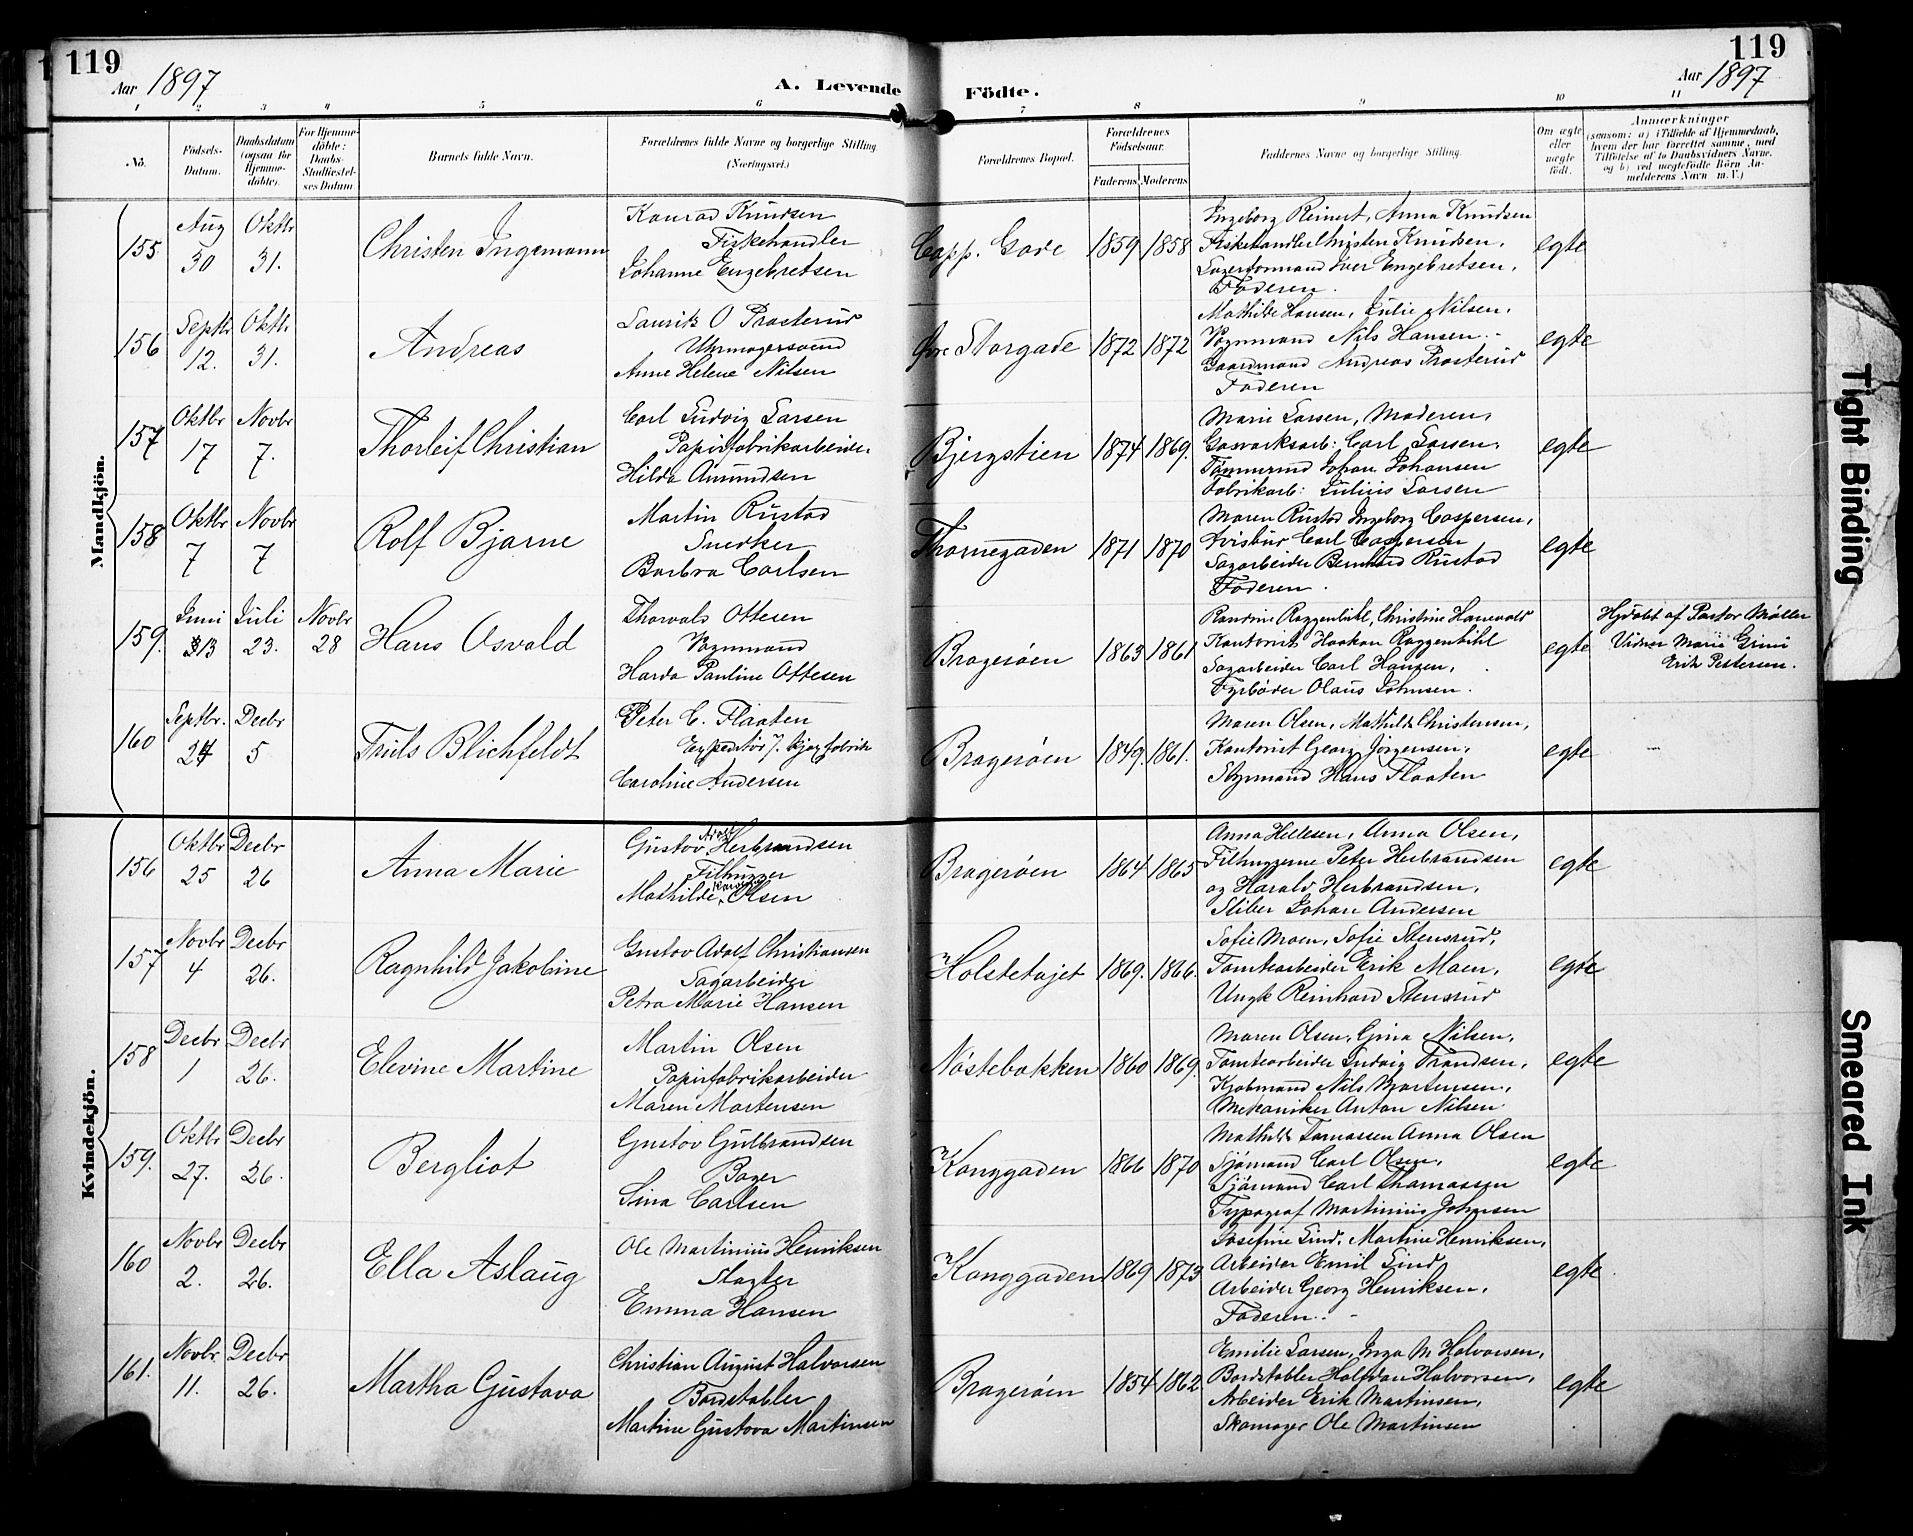 119
Aar 1897
A. Levende
1 2 3 4 5 6
No.
Födsels-
Datum.
Daabsdatum
(ogsaa for
Hjemme-
döbte).
For Hjemme-
döbte:
Daabs-
Stadfæstel-
ses Datum
Barnets fulde Navn.
Forældrenes fulde Navne og borgerlige Stilling
(Næringsvei.)
119
Aar 1897
Födte.
7 8 9 10 11
Forældrenes Bopæl.
Forældrenes
Födselsaar.
Faderens Moderens
Faddernes Navne og borgerlige Stilling.
Om ægte
eller
uægte
födt.
Anmærkninger
(saasom: a) i Tilfælde af Hjemmedaab,
hvem der har forrettet samme, med
Tilföielse af to Daabsvidners Navne.
og b) ved uægtefödte Börn An-
melderens Navn m. V.)
Mandkjön.
155
Aug
30
Oktbr
31.
Christen Ingemann
Konrad Knudsen
Fiskehandler
Johanne Engebretsen
Capp. Gade
1859 1858
Ingeborg Reinert, Anna Knudsen
Fiskehandler Christen Knudsen,
Lagerformand Iver Engebretsen,
Faderen.
egte
156
Septbr
12.
Oktbr
31.
Andreas
Lauritz O Prasterud
Uhrmagersvend
Anne Helene Nilsen
Øvre Storgade
1872 1872
Mathilde Hansen, Julie Nilsen,
Vognmand Nils Hansen
Gaardmand Andreas Prasterud
Faderen
egte
157
Oktbr
17
Novbr
7.
Thorleif Christian
Carl Ludvig Larsen
Papirfabrikarbeider
Hilda Amundsen
Bjergstien
1874 1869.
Marie Larsen, Moderen,
Gasværksarb: Carl Larsen,
Tømmermd Johan Johansen
Fabrikarb: Julius Larsen
egte
158
Oktbr
7
Novbr
7
Rolf Bjarne
Martin Rustad
Snedker
Barbra Carlsen
Thornegaden
1871 1870
Maren Rustad Ingeborg Caspersen,
Avisbud Carl Caspersen
Sagarbeider Bernhard Rustad
Faderen.
egte
159.
Juni
13
Juli
23.
Novbr
28
Hans Osvald
Thorvald Ottesen
Vognmand
Harda Pauline Ottesen
Bragerøen
1863 1861
Randine Roggenbihl, Christine Hanevold
Kontorist Haakon Roggenbihl
Sagarbeider Carl Hansen,
Fyrbøder Olaus Johnsen.
egte
Hjdøbt af Pastor Møller
Vidner Marie Grini
Erik Pettersen.
160
Septbr.
24
Decbr
5
Truls Blichfeldt
Peter C. Flaaten
Caroline Andersen
Bragerøen
1849. 1861.
Maren Olsen, Mathilde Christensen,
Kontorist Georg Jørgensen,
Styrmand Hans Flaaten
egte
Kvindekjön.
156
Oktbr
25
Decbr
26
Anna Marie
Gustav Herbrandsen
Filhugger
Mathilde Olsen
Bragerøen
1864 1865
Anna Hellesen, Anna Olsen,
Filhuggerne Peter Herbrandsen
og Harald Herbrandsen,
Sliber Johan Andersen
egte
157
Novbr
4
Decbr
26.
Ragnhild Jakobine
Gustav Adolf Christiansen
Sagarbeider
Petra Marie Hansen
Holstetøjet
1869. 1866.
Sofie Moen, Sofie Stensrud,
Tomtearbeider Erik Moen,
Ungk Reinhard Stensrud
egte
158
Decbr
1
Decbr
26.
Elevine Martine
Martin Olsen
Papirfabrikarbeider
Maren Mortensen
Nøstebakken
1860 1869.
Maren Olsen, Gina Nilsen,
Tomtearbeider Ludvig Frandsen,
Kjøbmand Nils Mortensen,
Mekaniker Anton Nilsen
egte
159.
Oktbr
27.
Decbr
26.
Bergliot
Gustav Gulbrandsen
Bager
Lina Carlsen
Konggaden
1866 1870
Mathilde Tomassen Anna Olsen
Sjømand Carl Olsen,
Sjømand Carl Thomassen
Typograf Martinius Johnsen
egte
160
Novbr
2.
Decbr
26.
Ella Aslaug
Ole Martinius Henriksen
Slagter
Emma Hansen
Konggaden
1869 1873
Josefine Lind, Martine Henriksen,
Arbeider Emil Lind
Arbeider Georg Henriksen,
Faderen.
egte
161.
Novbr.
11.
Decbr
26.
Martha Gustava
Christian August Halvorsen
Bordstabler
Martine Gustava Martinsen
Bragerøen
1854 1862
Emilie Larsen, Inga M Halvorsen,
Bordstabler Halfdan Halvorsen,
Arbeider Erik Martinsen,
Skomager Ole Martinsen
egte
Tight Binding
Smeared Ink